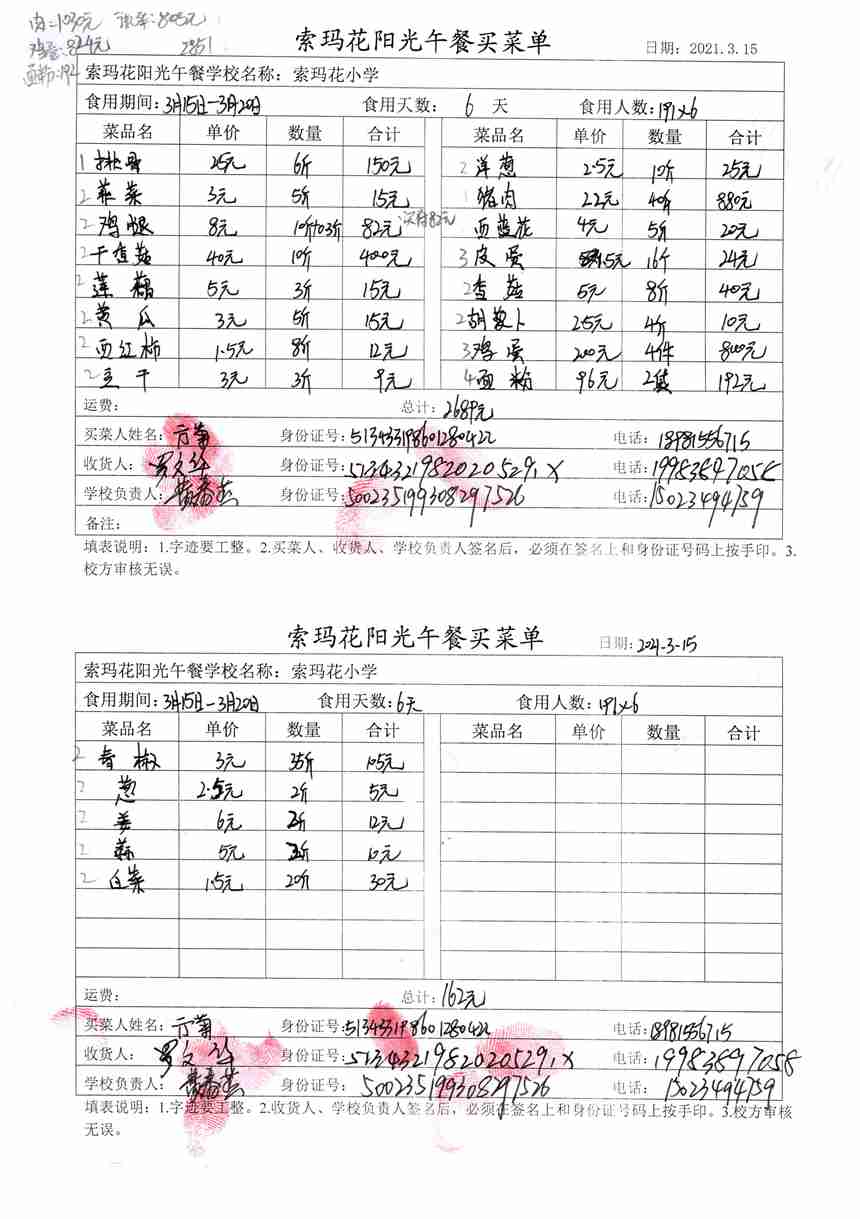 肉=1030元 蔬菜:805元
鸡蛋:824元 2851
面粉:192
索玛花阳光午餐买菜单 日期: 2021.3.15
索玛花阳光午餐学校名称: 索玛花小学
食用期间: 3月15日-3月20日 食用天数: 6 天 食用人数: 191×6
菜品名 单价 数量 合计 菜品名 单价 数量 合计
1 排骨 25元 6斤 150元 2 洋葱 2.5元 10斤 25元
2 韭菜 3元 5斤 15元 1 猪肉 22元 40斤 880元
2 鸡腿 8元 10斤零3斤 82元 西蓝花 4元 5斤 20元
2 干香菇 40元 10斤 400元 3 皮蛋 1.5元 16个 24元
2 莲藕 5元 3斤 15元 2 香菇 5元 8斤 40元
2 黄瓜 3元 5斤 15元 2 胡萝卜 2.5元 4斤 10元
2 西红柿 1.5元 8斤 12元 3 鸡蛋 200元 4件 800元
2 豆干 3元 3斤 9元 4 面粉 96元 2袋 192元
运费: 总计: 2689元
买菜人姓名: 方菊 身份证号: 513433198601280422 电话: 18981556715
收货人: 罗文华 身份证号: 51343219820205291X 电话: 19983697056
学校负责人: 身份证号: 500235199308297526 电话: 15023494759
备注:
填表说明: 1.字迹要工整。2.买菜人、收货人、学校负责人签名后，必须在签名上和身份证号码上按手印。3.
校方审核无误。
索玛花阳光午餐买菜单 日期: 2021-3-15
索玛花阳光午餐学校名称: 索玛花小学
食用期间: 3月15日-3月20日 食用天数: 6天 食用人数: 191×6
菜品名 单价 数量 合计 菜品名 单价 数量 合计
2 青椒 3元 35斤 105元
2 葱 2.5元 2斤 5元
2 姜 6元 2斤 12元
2 蒜 5元 2斤 10元
2 白菜 1.5元 20斤 30元
运费: 总计: 162元
买菜人姓名: 方菊 身份证号: 513433198601280422 电话: 18981556715
收货人: 罗文华 身份证号: 51343219820205291X 电话: 19983697056
学校负责人: 身份证号: 500235199308297526 电话: 15023494759
填表说明: 1.字迹要工整。2.收货人、学校负责人签名后，必须在签名上和身份证号码上按手印。3.校方审核
无误。